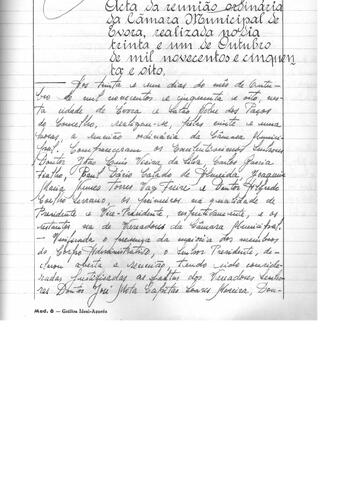 Acta da reunião ordinária
da Câmara Municipal de
Evora, realizada no dia
trinta e um de Outubro
de mil novecentos e cinquen
ta e oito.
Aos trinta e um dias do mês de Outu-
bro de mil novecentos e cinquenta e oito, nes-
ta cidade de Evora e Salão Nobre dos Paços
do Concelho, realizou-se, pelas vinte e uma
horas, a reunião ordinária da Câmara Munici-
pal. Compareceram os Excelentíssimos Senhores
Doutor João Luís Vieira da Silva, Carlos
Fialho, Raul Dário Caldado de Almeida, Joaquim
Maria Nunes Torres Vaz Freire e Doutor
Coelho Serrano, os primeiros na qualidade de
Presidente e Vice-Presidente, respectivamente, e os
restantes na de Vereadores da Câmara Municipal.
Verificada a presença da maioria dos membros
do Corpo Administrativo, o Senhor Presidente, de-
clarou aberta a reunião, tendo sido conside-
radas justificadas as faltas dos Vereadores Senho-
res Doutor José Mota Capitão Soares Moreira, Dou-
Mod. 6 — Gráfica Ideal-Agueda